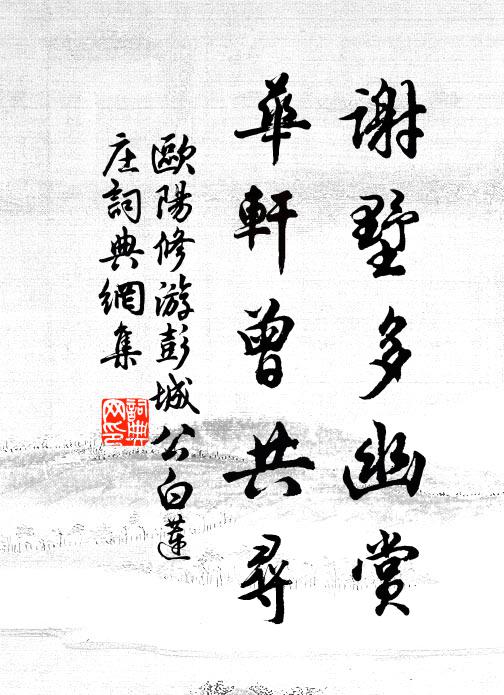 謝墅多幽賞
華軒曾共尋
歐陽修游彭城公白蓮
庄詞典網集
詞典
网印